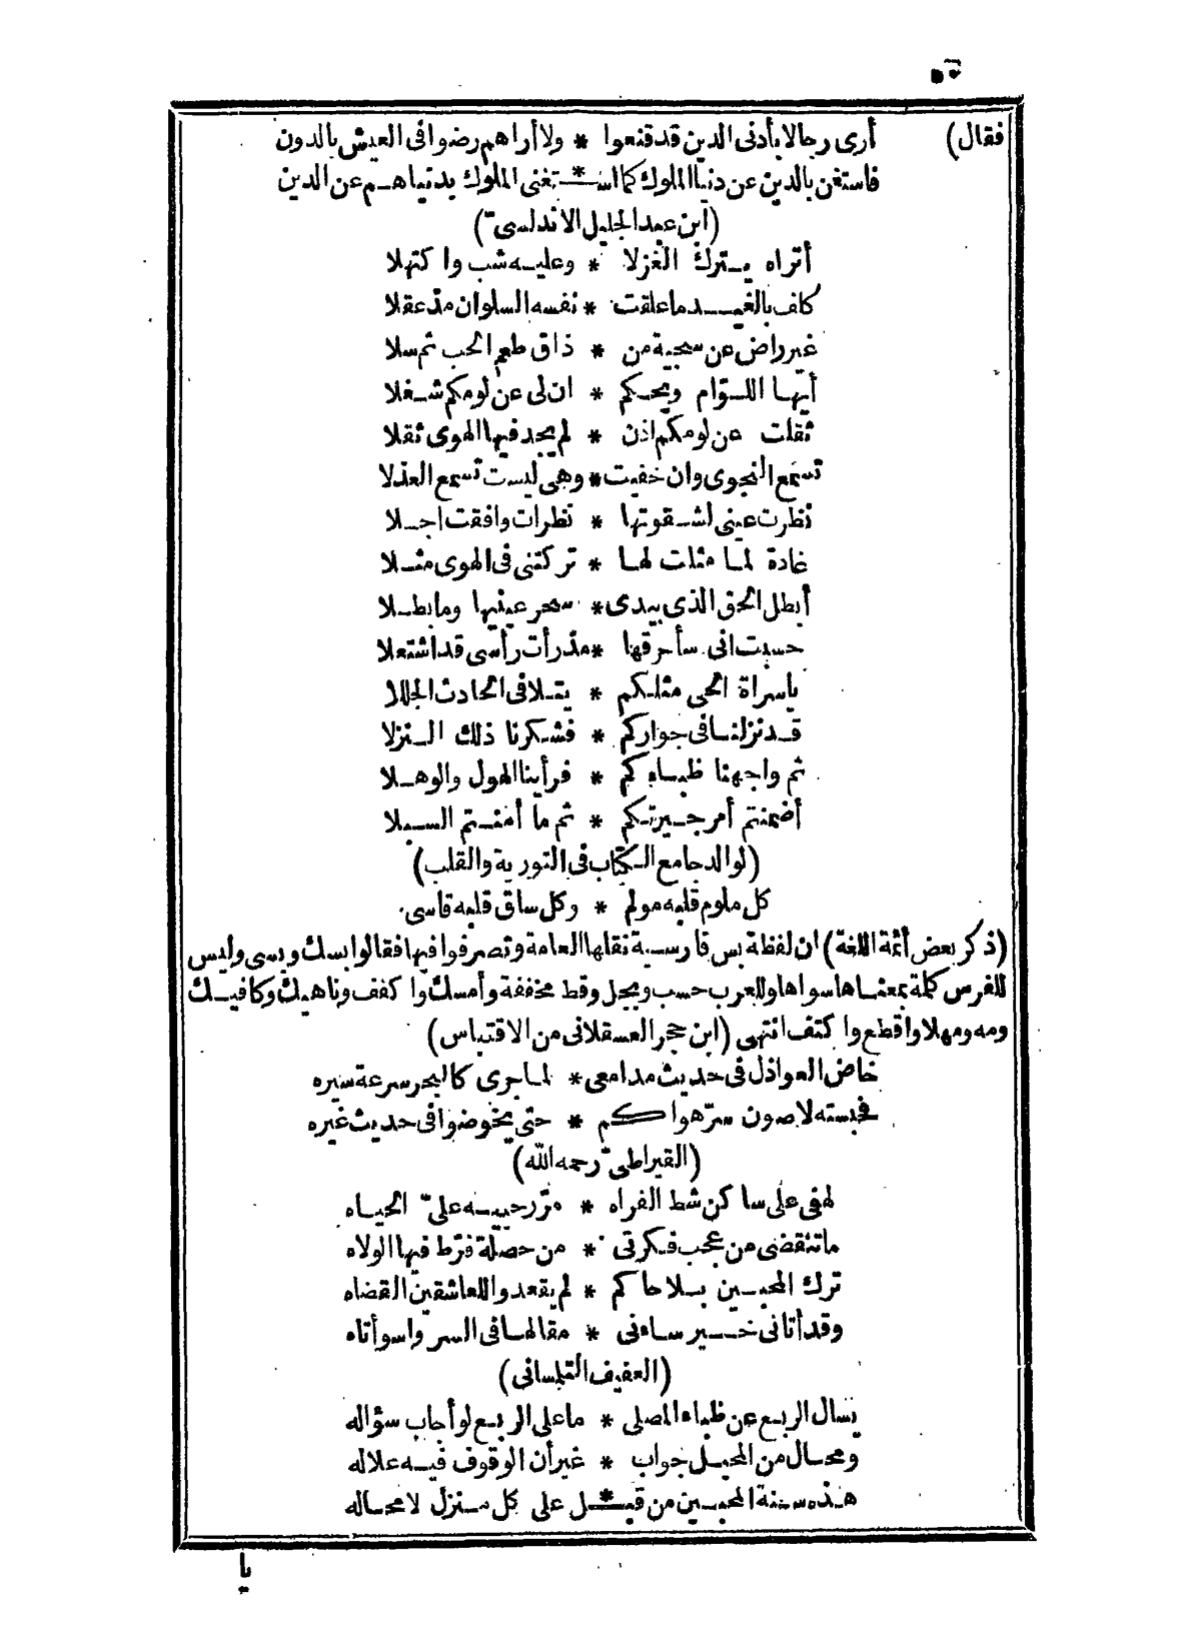 ٥٣
فقال) أرى رجالا بأدنى الدين قد قنعوا * ولا أراهم رضوا فى العيش بالدون
فاستغن بالدين عن دنيا الملوك كما اسـ * ـتغنى الملوك بدنياهم عن الدين
(ابن عبد الجليل الاندلسى)
أتراه يترك الغزلا * وعليه شب واكتهلا
كلف بالغيد ما علقت * نفسه السلوان مذ عقلا
غير راض عن سجية من * ذاق طعم الحب ثم سلا
أيها اللوّام ويحكم * ان لى عن لومكم شغلا
ثقلت عن لومكم اذن * لم يجد فيها الهوى ثقلا
تسمع النجوى وان خفيت * وهى ليست تسمع العذلا
نظرت عينى لشقوتها * نظرات وافقت اجلا
غادة لما مثلت لها * تركتنى فى الهوى مثلا
أبطل الحق الذى بيدى * سحر عينيها وما بطلا
حسبت انى سأحرقها * مذ رأت رأسى قد اشتعلا
ياسراة الحى مثلكم * يتلافى الحادث الجللا
قد نزلنا فى جواركم * فشكرنا ذلك النزلا
ثم واجهنا ظباءكم * فرأينا الهول والوهلا
أضمنتم أمر جيرتكم * ثم ما أمنتم السبلا
(لوالد جامع الكتاب فى التورية والقلب)
كل ملوم قلبه مولم * وكل ساق قلبه قاسى
(ذكر بعض أئمة اللغة) ان لفظة بس فارسية نقلها العامة وتصرفوا فيها فقالوا بسك وبسى وليس
للفرس كلمة بمعناها سواها وللعرب حسب وبجل وقط مخففة وأمسك واكفف وناهيك وكافيك
ومه ومهلا واقطع واكتف انتهى (ابن حجر العسقلانى من الاقتباس)
خاض العواذل فى حديث مدامعى * لما جرى كالبحر سرعة سيره
فحبسته لاصون سرّ هواكم * حتى يخوضوا فى حديث غيره
(القيراطى رحمه الله)
لهفى على ساكن شط الفراه * مرّر حبيه علىّ الحياه
ما تنقضى من عجب فكرتى * من خصلة فرّط فيها الولاه
ترك المحبين بلا حاكم * لم يقعدوا للعاشقين القضاه
وقد أتانى خبر ساءنى * مقالها فى السر واسوأتاه
(العفيف التلمسانى)
يسال الربع عن ظباء المصلى * ما على الربع لو أجاب سؤاله
ومحال من المحيل جواب * غير أن الوقوف فيه علاله
هذه سنة المحبين من قبـ * ـل على كل منزل لا محاله
يا